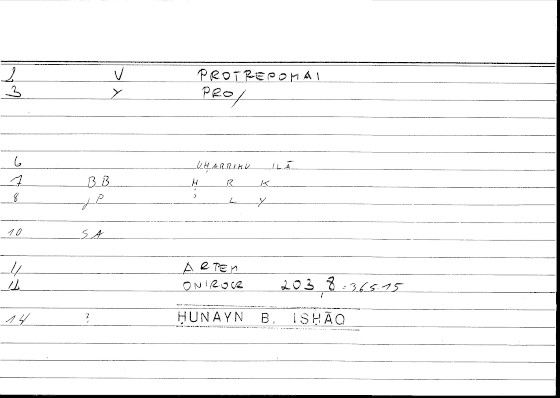 2 V PROTREPOMAI
3 Y PRO/
6 UḤARRIKU ILĀ
7 BB Ḥ R K
8 JP ʾ L Y
10 SA
11 ARTEM
12 ONIROCR 203,8 : 365 15
14 ? ḤUNAYN B. ISḤĀQ